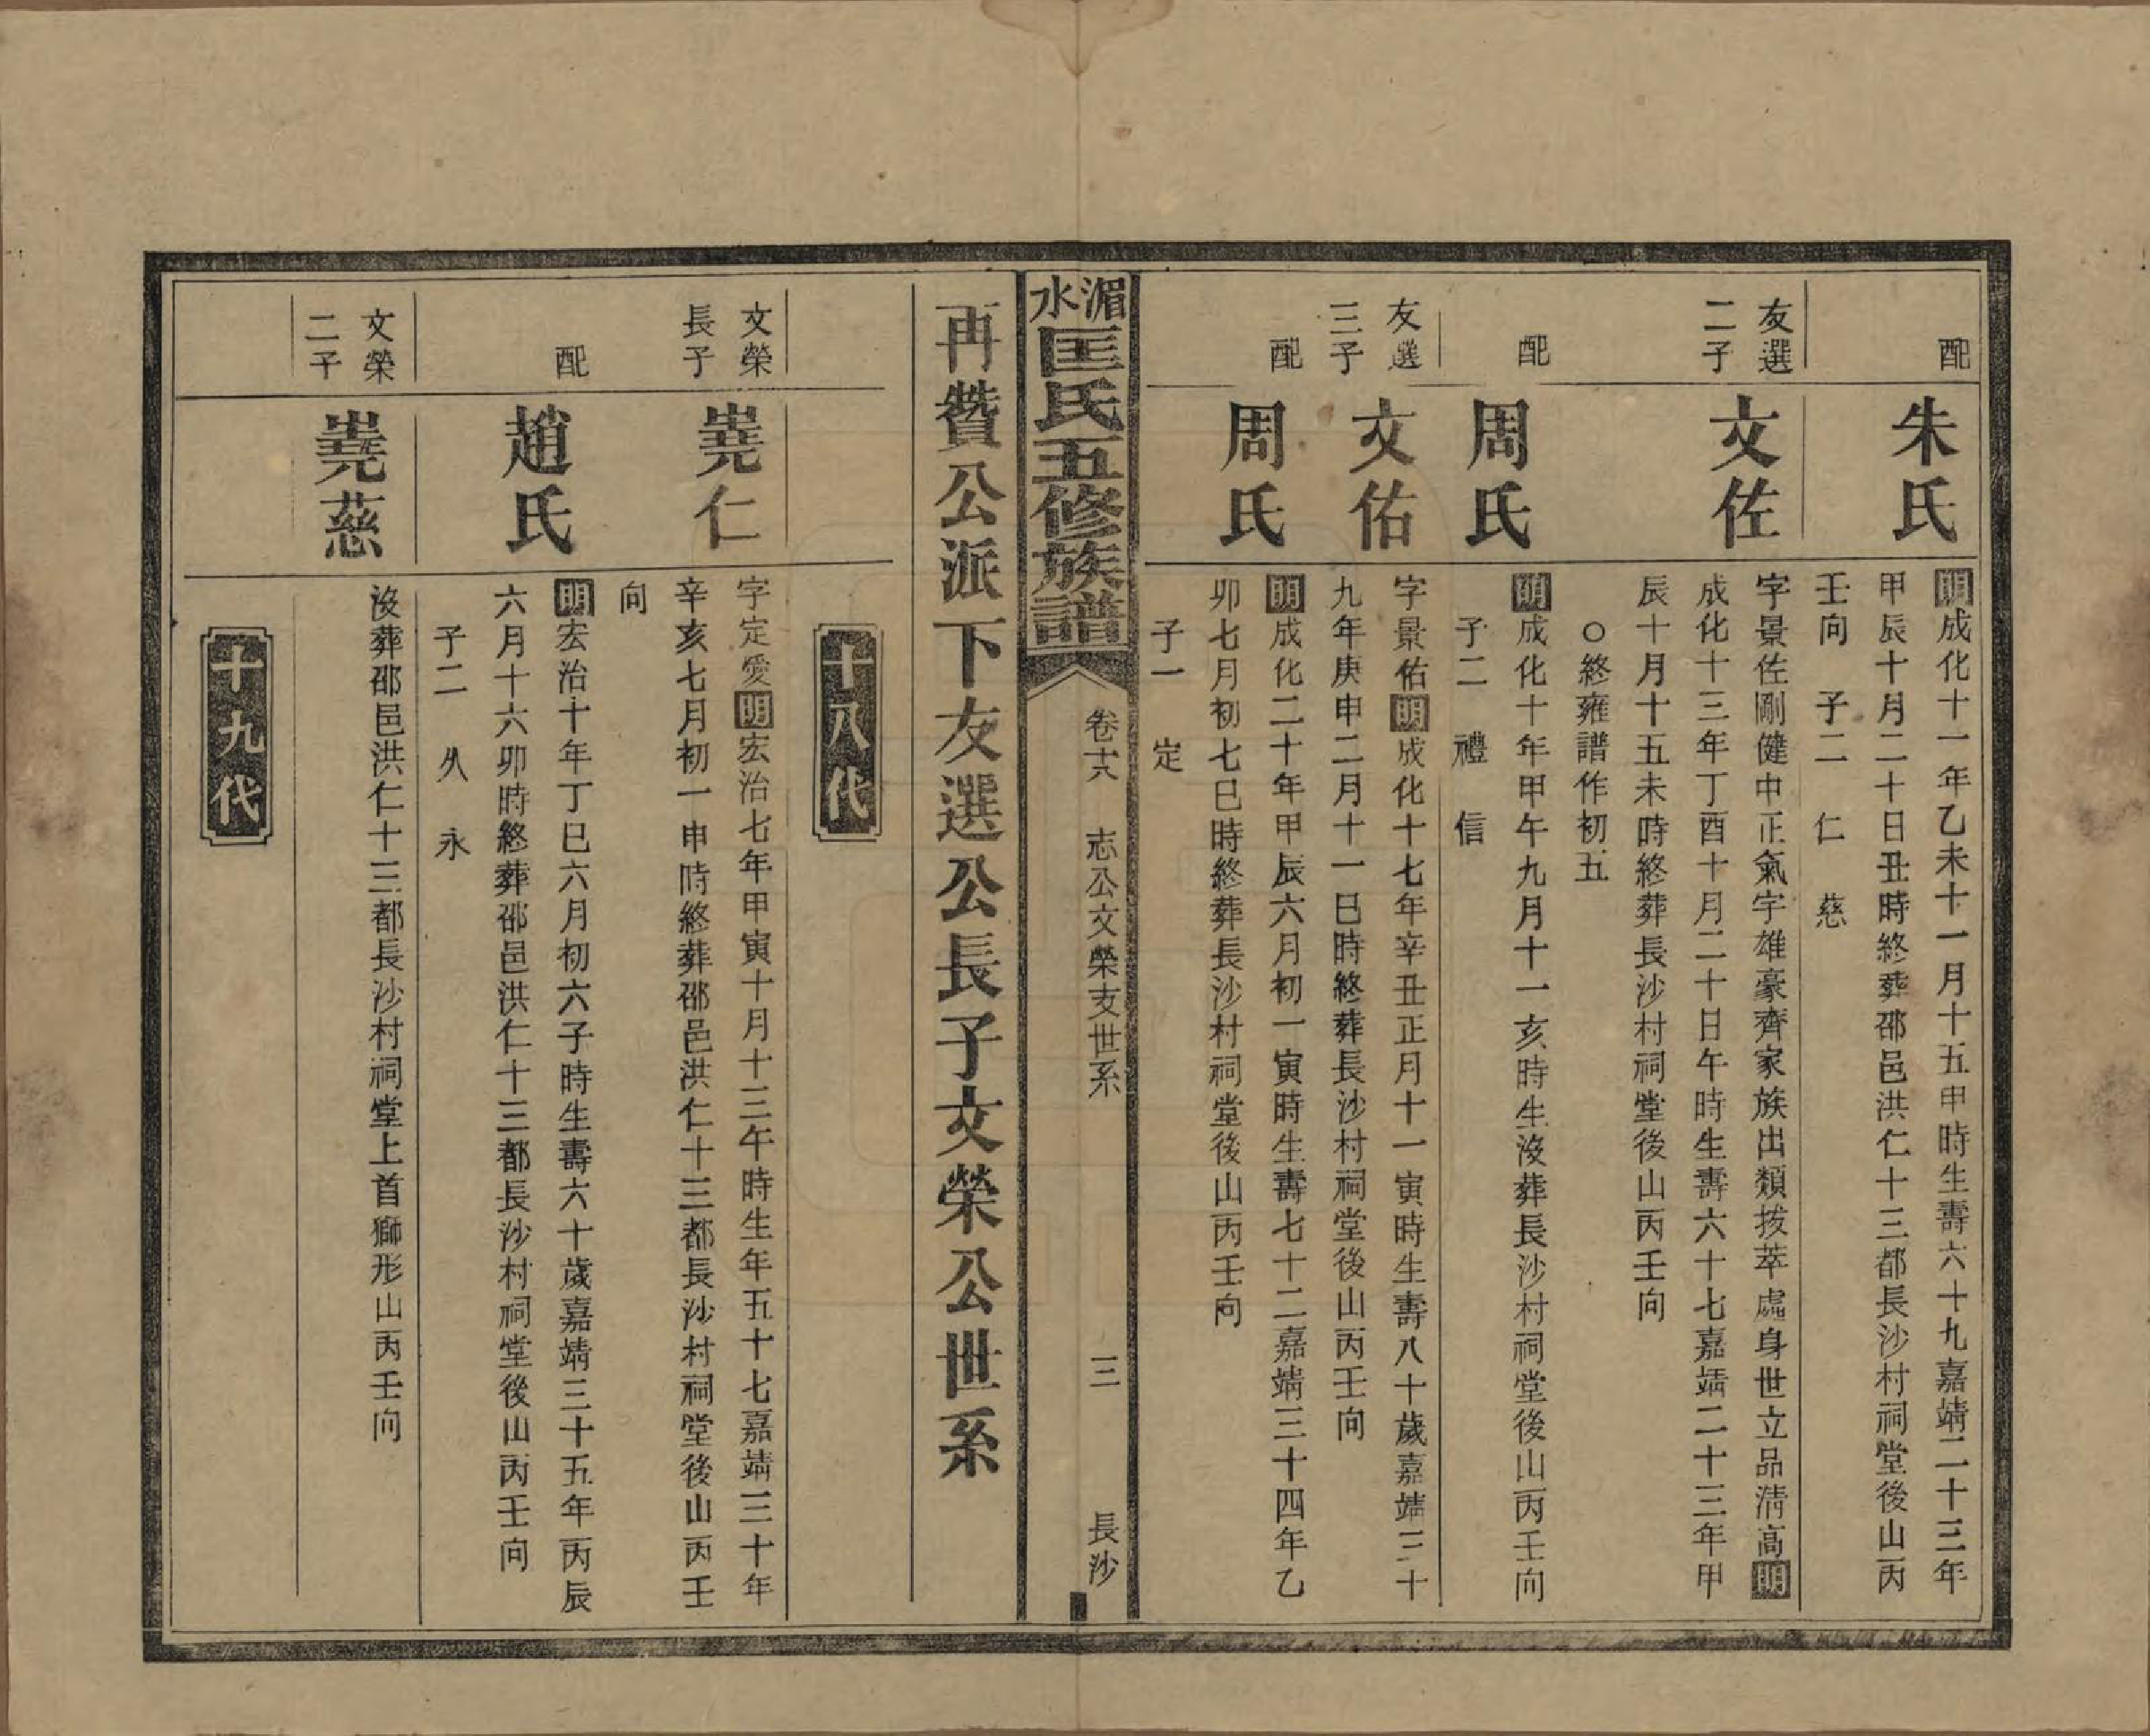 配
朱氏
明成化十一年乙未十一月十五申時生壽六十九嘉靖二十三年
甲辰十月二十日丑時終葬邵邑洪仁十三都長沙村祠堂後山丙
壬向　子二　仁　慈
友選
二子
文佐
字景佐剛健中正氣宇雄豪齊家族出類拔萃處身世立品清高明
成化十三年丁酉十月二十日午時生壽六十七嘉靖二十三年甲
辰十月十五未時終葬長沙村祠堂後山丙壬向
○終雍譜作初五
配
周氏
明成化十年甲午九月十一亥時生沒葬長沙村祠堂後山丙壬向
子二　禮　信
友選
三子
文佑
字景佑明成化十七年辛丑正月十一寅時生壽八十歲嘉靖三十
九年庚申二月十一巳時終葬長沙村祠堂後山丙壬向
配
周氏
明成化二十年甲辰六月初一寅時生壽七十二嘉靖三十四年乙
卯七月初七巳時終葬長沙村祠堂後山丙壬向
子一　定
湄水匡氏五修族譜
卷十六　志公文榮支世系　三　長沙
再贊公派下友選公長子文榮公世系
十八代
文榮
長子
堯仁
字定愛明宏治七年甲寅十月十三午時生年五十七嘉靖三十年
辛亥七月初一申時終葬邵邑洪仁十三都長沙村祠堂後山丙壬
向
配
趙氏
明宏治十年丁巳六月初六子時生壽六十歲嘉靖三十五年丙辰
六月十六卯時終葬邵邑洪仁十三都長沙村祠堂後山丙壬向
子二　久　永
文榮
二子
堯慈
沒葬邵邑洪仁十三都長沙村祠堂上首獅形山丙壬向
十九代